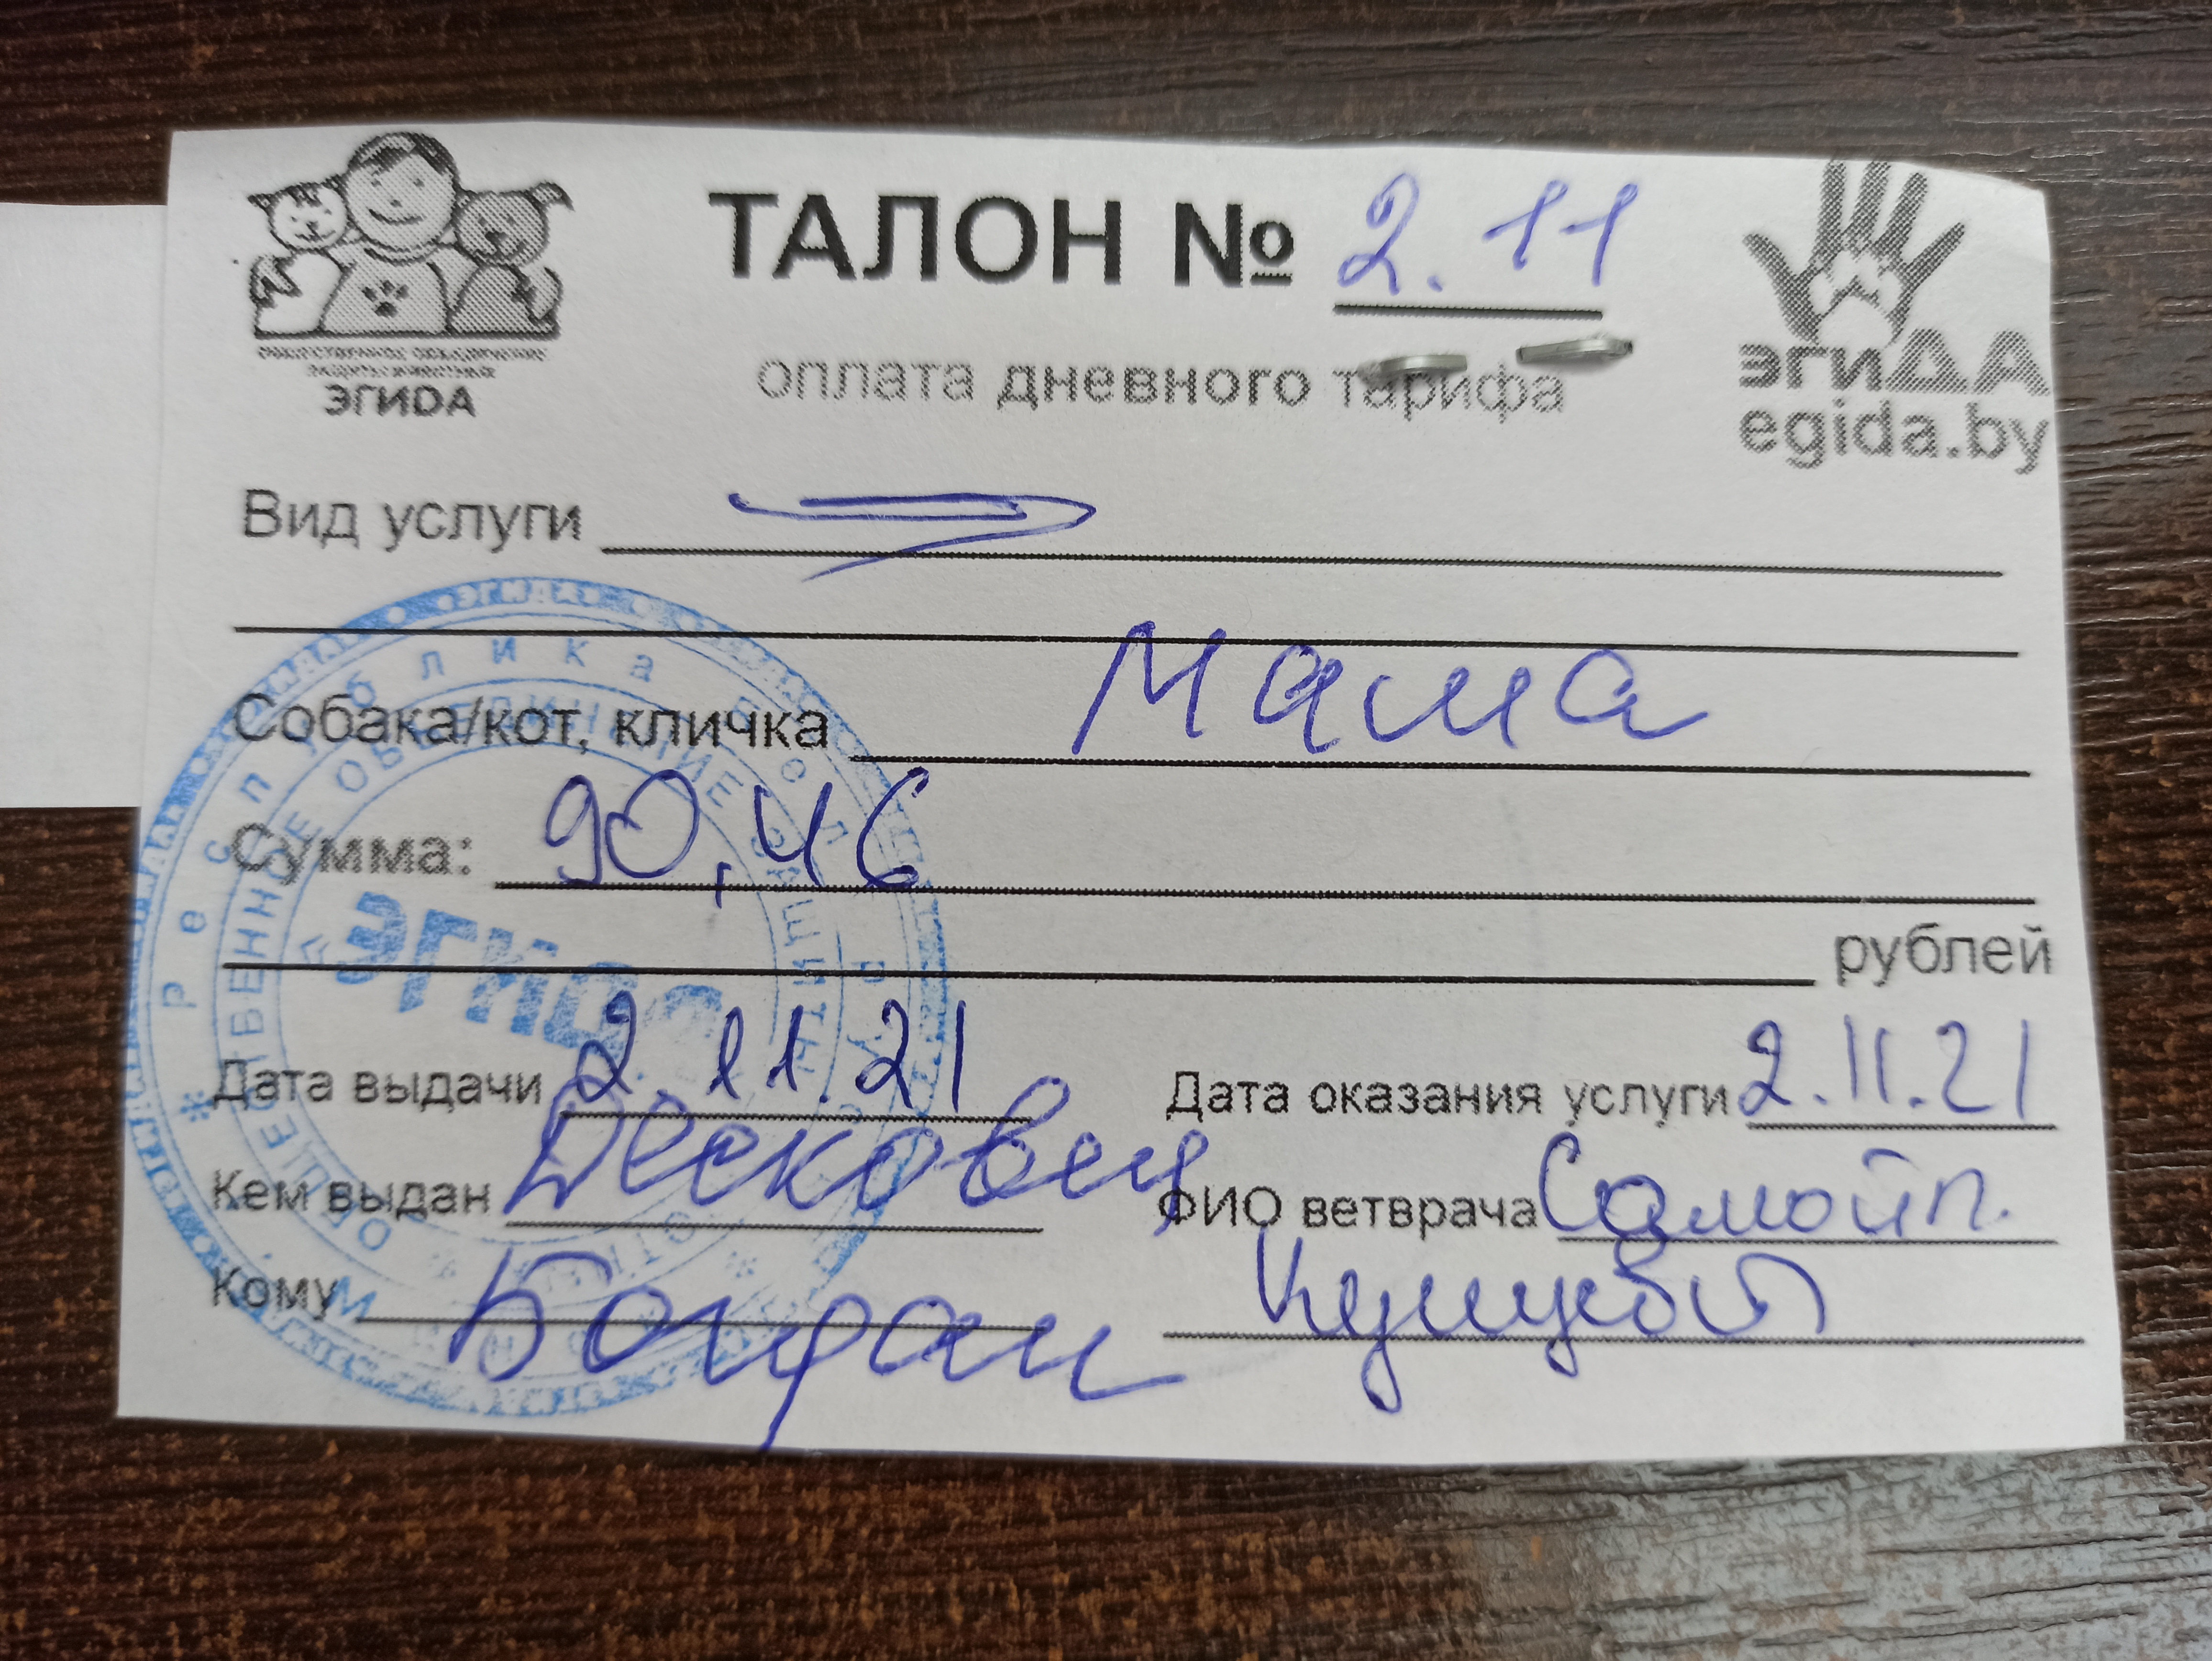 ТАЛОН № 2.11
оплата дневного тарифа
ОБЩЕСТВЕННОЕ ОБЪЕДИНЕНИЕ
ЗАЩИТЫ ЖИВОТНЫХ
ЭГИДА
эгиДА
egida.by
Вид услуги
Собака/кот, кличка Мама
Сумма: 90,46
рублей
Дата выдачи 2.11.21 Дата оказания услуги 2.11.21
Кем выдан ФИО ветврача Самойл.
Кому Богдан
«ЭГИДА»
Республика
ОБЩЕСТВЕННОЕ ОБЪЕДИНЕНИЕ ЗАЩИТЫ
ЭГИДА